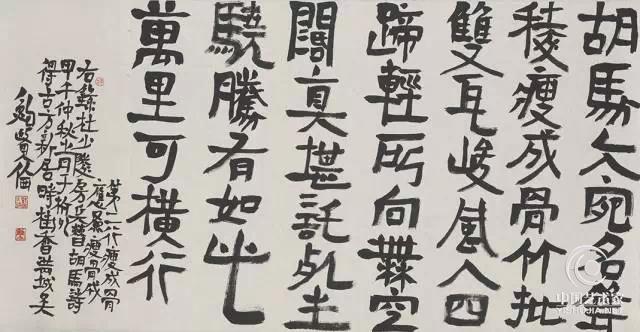 胡馬大宛名鋒
稜瘦成骨竹批
雙耳峻風入四
蹄輕所向無空
闊真堪託死生
驍騰有如此
萬里可橫行
第二行瘦成骨
應爲瘦骨成
右錄杜少陵房兵曹胡馬詩
甲午仲秋之月于杭州
得古方新居時桂香滿城矣
鮑賢倫
中国艺术家
YISHUJIA.NET